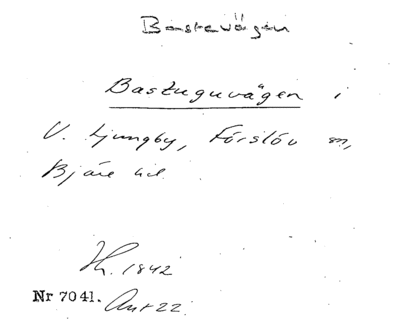 Bastevägen
Bastuguvägen i
V. Ljungby, Förslöv sn,
Bjäre hd
Th. 1842
Nr 7041. Ant 22